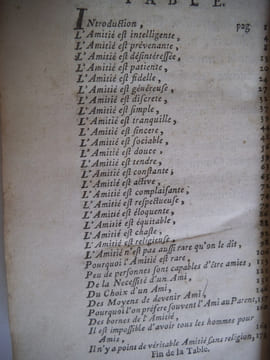 TABLE.
INtroduction, pag 1
L'Amitié est intelligente,
L'Amitié est prévenante,
L'Amitié est désintéressée,
L'Amitié est patiente,
L'Amitié est fidelle,
L'Amitié est généreuse,
L'Amitié est discrete,
L'Amitié est simple,
L'Amitié est tranquille,
L'Amitié est sincere,
L'Amitié est sociable,
L'Amitié est douce,
L'Amitié est tendre,
L'Amitié est constante,
L'Amitié est active,
L'Amitié est complaisante,
L'Amitié est respectueuse,
L'Amitié est éloquente,
L'Amitié est équitable,
L'Amitié est chaste,
L'Amitié est religieuse,
L'Amitié n'est pas aussi rare qu'on le dit,
Pourquoi l'Amitié est rare,
Peu de personnes sont capables d'être amies,
De la Necessité d'un Ami,
Du Choix d'un Ami,
Des Moyens de devenir Ami,
Pourquoi l'on préfere souvent l'Ami au Parent,
Des bornes de l'Amitié,
Il est impossible d'avoir tous les hommes pour
Amis,
Il n'y a point de véritable Amitié sans religion,
Fin de la Table.